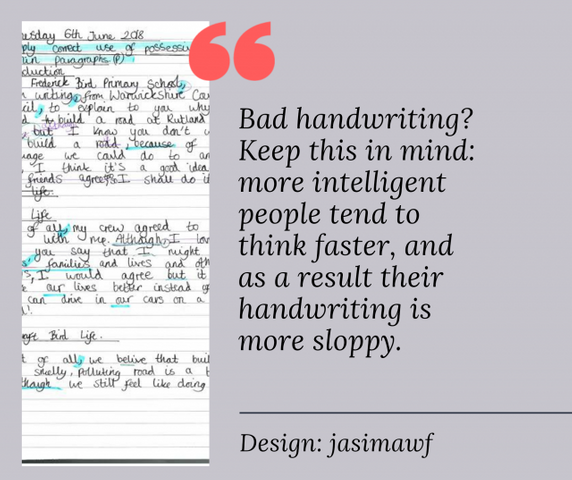 usday 6th June 2018
ply correct use of possessiv
in paragraphs (P)
duction
Frederick Bird Primary School,
writing, from Warwickshire Cou
cil, to explain to you why
d to build a road at Rutland
but I know you don't
build a road, because of
nage we could do to an
"I think it's a good idea
friends agree, I shall do i
life.
Life
of all, my crew agreed to
with me. Although, I lov
you say that I might
families and lives and oth
I would agree but it
our lives better instead of
can drive in our cars on a
Bird Life.
t of all, we belive that buil
smelly, polluting road is a t
though we still feel like doing
“
Bad handwriting?
Keep this in mind:
more intelligent
people tend to
think faster, and
as a result their
handwriting is
more sloppy.
Design: jasimawf